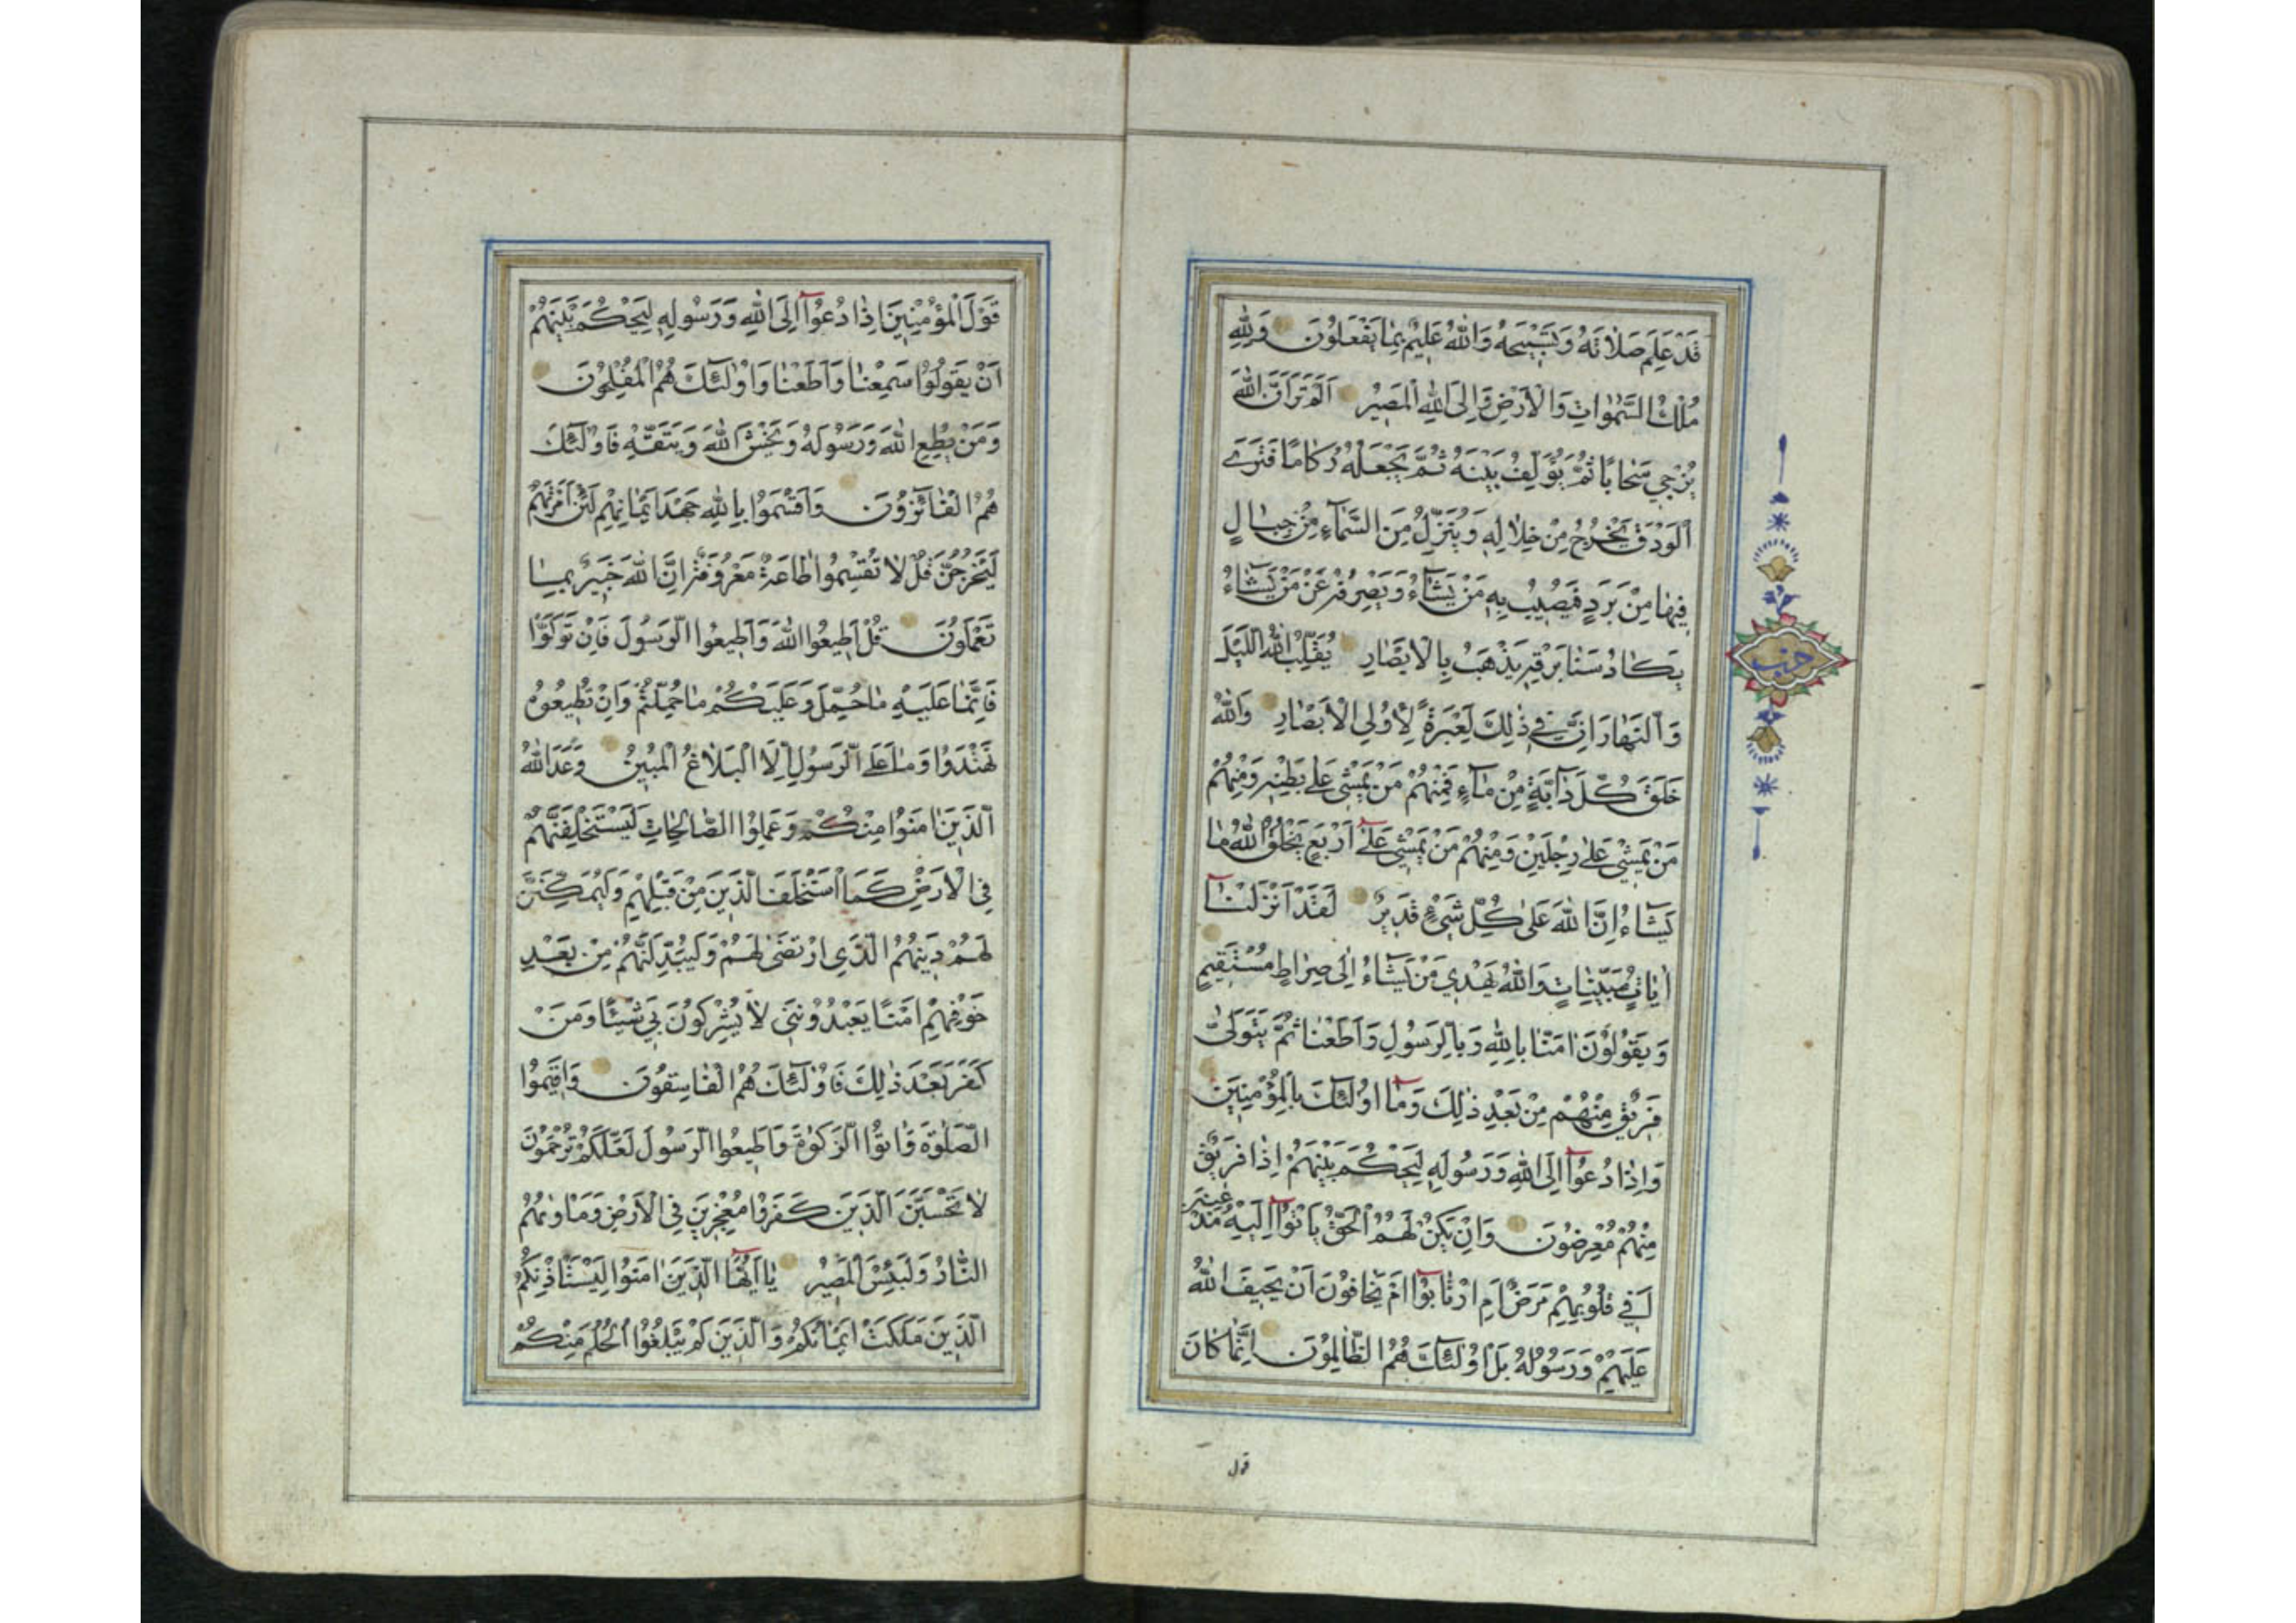 قَدْ عَلِمَ صَلَاتَهُ وَتَسْبِيحَهُ وَاللّٰهُ عَلِيمٌ بِمَا يَفْعَلُونَ وَلِلّٰهِ
مُلْكُ السَّمٰوَاتِ وَالْأَرْضِ وَإِلَى اللّٰهِ الْمَصِيرُ أَلَمْ تَرَ أَنَّ اللّٰهَ
يُزْجِي سَحَابًا ثُمَّ يُؤَلِّفُ بَيْنَهُ ثُمَّ يَجْعَلُهُ رُكَامًا فَتَرَى
الْوَدْقَ يَخْرُجُ مِنْ خِلَالِهِ وَيُنَزِّلُ مِنَ السَّمَاءِ مِنْ جِبَالٍ
فِيهَا مِنْ بَرَدٍ فَيُصِيبُ بِهِ مَنْ يَشَاءُ وَيَصْرِفُهُ عَنْ مَنْ يَشَاءُ
يَكَادُ سَنَا بَرْقِهِ يَذْهَبُ بِالْأَبْصَارِ يُقَلِّبُ اللّٰهُ اللَّيْلَ
وَالنَّهَارَ إِنَّ فِي ذٰلِكَ لَعِبْرَةً لِأُولِي الْأَبْصَارِ وَاللّٰهُ
خَلَقَ كُلَّ دَابَّةٍ مِنْ مَاءٍ فَمِنْهُمْ مَنْ يَمْشِي عَلَى بَطْنِهِ وَمِنْهُمْ
مَنْ يَمْشِي عَلَى رِجْلَيْنِ وَمِنْهُمْ مَنْ يَمْشِي عَلَى أَرْبَعٍ يَخْلُقُ اللّٰهُ مَا
يَشَاءُ إِنَّ اللّٰهَ عَلَى كُلِّ شَيْءٍ قَدِيرٌ لَقَدْ أَنْزَلْنَا
اٰيَاتٍ مُبَيِّنَاتٍ وَاللّٰهُ يَهْدِي مَنْ يَشَاءُ إِلَى صِرَاطٍ مُسْتَقِيمٍ
وَيَقُولُونَ اٰمَنَّا بِاللّٰهِ وَبِالرَّسُولِ وَأَطَعْنَا ثُمَّ يَتَوَلَّى
فَرِيقٌ مِنْهُمْ مِنْ بَعْدِ ذٰلِكَ وَمَا أُولٰئِكَ بِالْمُؤْمِنِينَ
وَإِذَا دُعُوا إِلَى اللّٰهِ وَرَسُولِهِ لِيَحْكُمَ بَيْنَهُمْ إِذَا فَرِيقٌ
مِنْهُمْ مُعْرِضُونَ وَإِنْ يَكُنْ لَهُمُ الْحَقُّ يَأْتُوا إِلَيْهِ مُذْعِنِينَ
أَفِي قُلُوبِهِمْ مَرَضٌ أَمِ ارْتَابُوا أَمْ يَخَافُونَ أَنْ يَحِيفَ اللّٰهُ
عَلَيْهِمْ وَرَسُولُهُ بَلْ أُولٰئِكَ هُمُ الظَّالِمُونَ إِنَّمَا كَانَ
قول
حزب
قَوْلَ الْمُؤْمِنِينَ إِذَا دُعُوا إِلَى اللّٰهِ وَرَسُولِهِ لِيَحْكُمَ بَيْنَهُمْ
أَنْ يَقُولُوا سَمِعْنَا وَأَطَعْنَا وَأُولٰئِكَ هُمُ الْمُفْلِحُونَ
وَمَنْ يُطِعِ اللّٰهَ وَرَسُولَهُ وَيَخْشَ اللّٰهَ وَيَتَّقْهِ فَأُولٰئِكَ
هُمُ الْفَائِزُونَ وَأَقْسَمُوا بِاللّٰهِ جَهْدَ أَيْمَانِهِمْ لَئِنْ أَمَرْتَهُمْ
لَيَخْرُجُنَّ قُلْ لَا تُقْسِمُوا طَاعَةٌ مَعْرُوفَةٌ إِنَّ اللّٰهَ خَبِيرٌ بِمَا
تَعْمَلُونَ قُلْ أَطِيعُوا اللّٰهَ وَأَطِيعُوا الرَّسُولَ فَإِنْ تَوَلَّوْا
فَإِنَّمَا عَلَيْهِ مَا حُمِّلَ وَعَلَيْكُمْ مَا حُمِّلْتُمْ وَإِنْ تُطِيعُوهُ
تَهْتَدُوا وَمَا عَلَى الرَّسُولِ إِلَّا الْبَلَاغُ الْمُبِينُ وَعَدَ اللّٰهُ
الَّذِينَ اٰمَنُوا مِنْكُمْ وَعَمِلُوا الصَّالِحَاتِ لَيَسْتَخْلِفَنَّهُمْ
فِي الْأَرْضِ كَمَا اسْتَخْلَفَ الَّذِينَ مِنْ قَبْلِهِمْ وَلَيُمَكِّنَنَّ
لَهُمْ دِينَهُمُ الَّذِي ارْتَضَى لَهُمْ وَلَيُبَدِّلَنَّهُمْ مِنْ بَعْدِ
خَوْفِهِمْ أَمْنًا يَعْبُدُونَنِي لَا يُشْرِكُونَ بِي شَيْئًا وَمَنْ
كَفَرَ بَعْدَ ذٰلِكَ فَأُولٰئِكَ هُمُ الْفَاسِقُونَ وَأَقِيمُوا
الصَّلٰوةَ وَاٰتُوا الزَّكٰوةَ وَأَطِيعُوا الرَّسُولَ لَعَلَّكُمْ تُرْحَمُونَ
لَا تَحْسَبَنَّ الَّذِينَ كَفَرُوا مُعْجِزِينَ فِي الْأَرْضِ وَمَأْوٰيهُمُ
النَّارُ وَلَبِئْسَ الْمَصِيرُ يَا أَيُّهَا الَّذِينَ اٰمَنُوا لِيَسْتَأْذِنْكُمُ
الَّذِينَ مَلَكَتْ أَيْمَانُكُمْ وَالَّذِينَ لَمْ يَبْلُغُوا الْحُلُمَ مِنْكُمْ